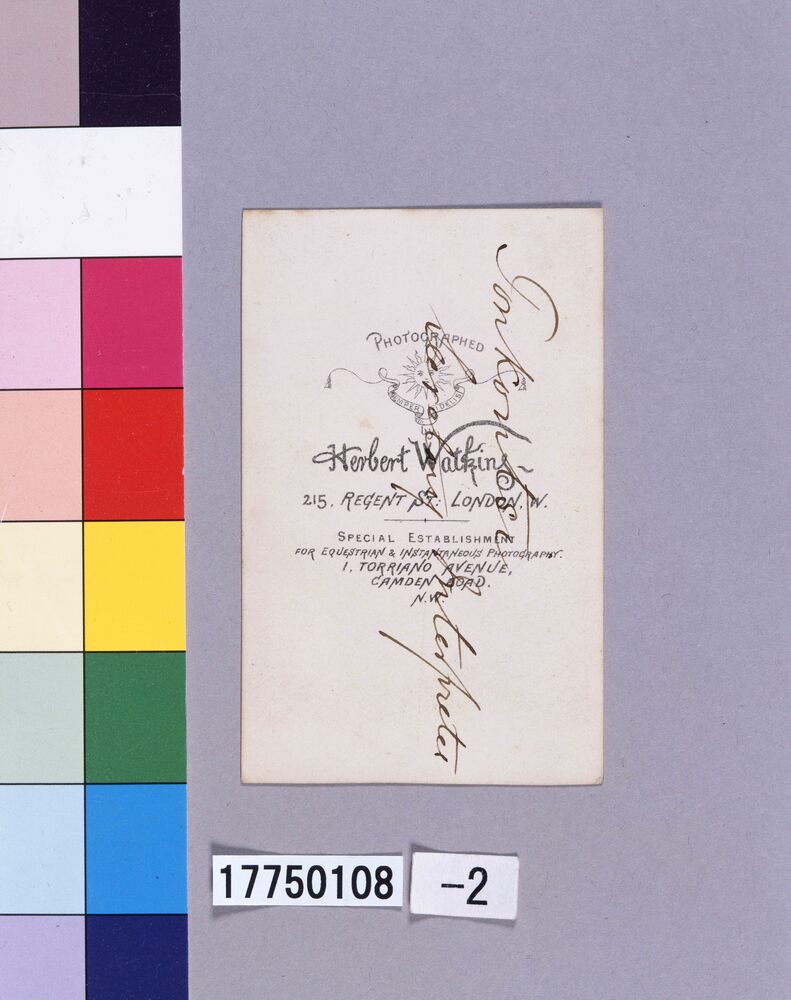 PHOTOGRAPHED
SEMPER FIDELIS
BY
Herbert Watkins
215, REGENT ST: LONDON, W.
SPECIAL ESTABLISHMENT
FOR EQUESTRIAN & INSTANTANEOUS PHOTOGRAPHY.
1, TORRIANO AVENUE,
CAMDEN ROAD.
N.W.
Interpreter
17750108 -2